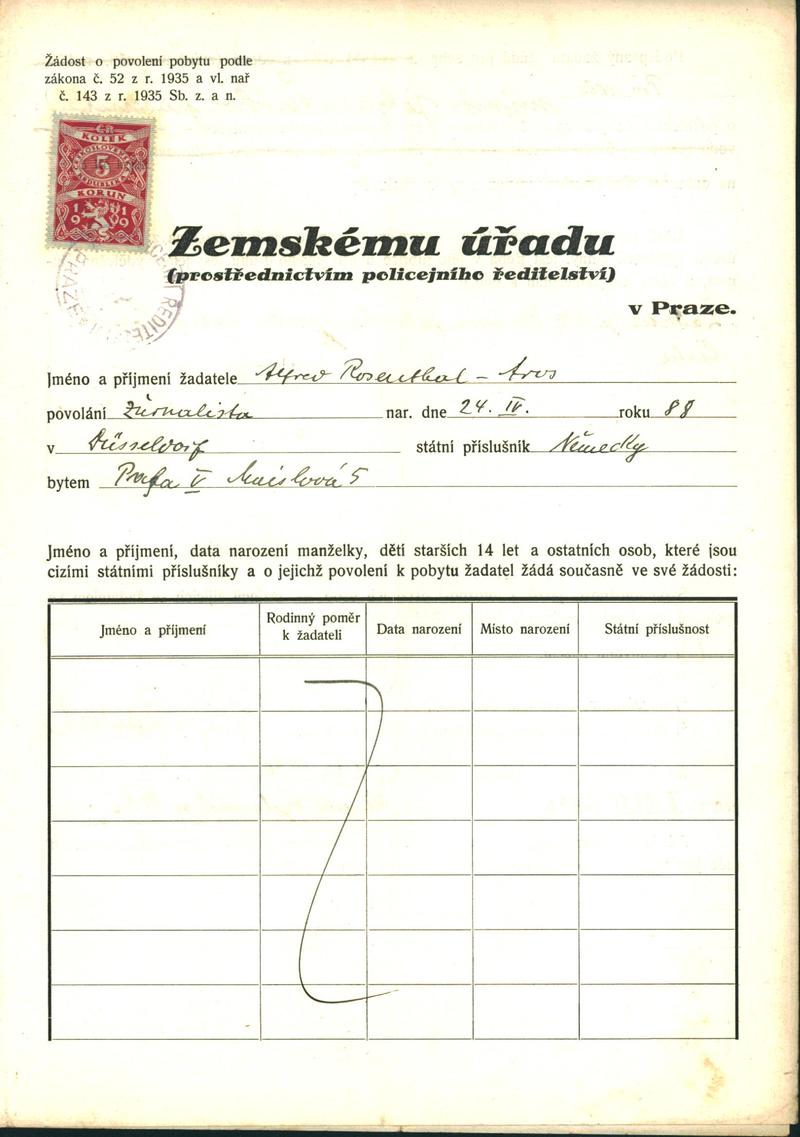 Žádost o povolení pobytu podle
zákona č. 52 z r. 1935 a vl. nař
č. 143 z r. 1935 Sb. z. a n.
KOLEK
5
KORUN
1919
Zemskému úřadu
(prostřednictvím policejního ředitelství)
v Praze.
Jméno a příjmení žadatele Alfred Rosenthal - Aros
povolání žurnalista nar. dne 24. IV. roku 88
v Düsseldorf státní příslušník Německý
bytem Praha V Maislová 5
Jméno a příjmení, data narození manželky, dětí starších 14 let a ostatních osob, které jsou
cizími státními příslušníky a o jejichž povolení k pobytu žadatel žádá současně ve své žádosti:
Jméno a příjmení
Rodinný poměr
k žadateli
Data narození
Místo narození
Státní příslušnost